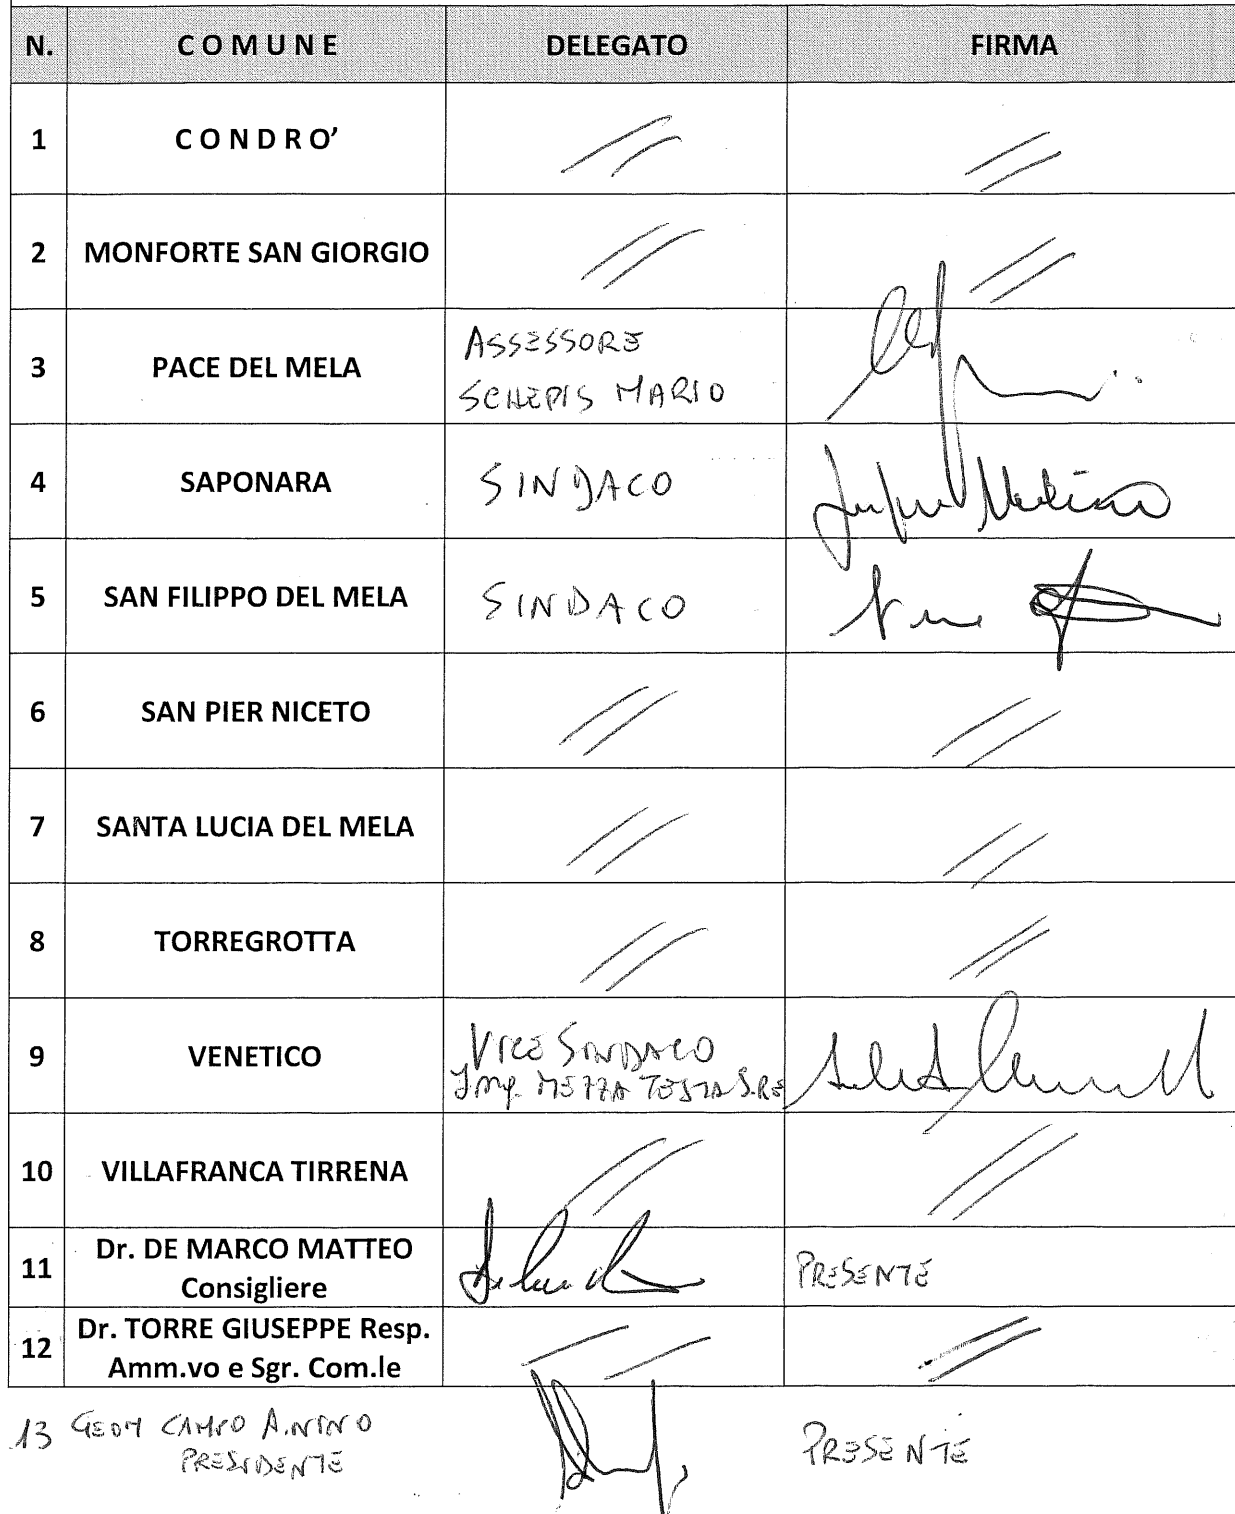 N. C O M U N E DELEGATO FIRMA
1 C O N D R O’ // //
2 MONFORTE SAN GIORGIO // //
3 PACE DEL MELA ASSESSORE
SCHEPIS MARIO
4 SAPONARA SINDACO
5 SAN FILIPPO DEL MELA SINDACO
6 SAN PIER NICETO // //
7 SANTA LUCIA DEL MELA // //
8 TORREGROTTA // //
9 VENETICO VICE SINDACO
MEZZA TESTA
10 VILLAFRANCA TIRRENA // //
11 Dr. DE MARCO MATTEO
Consigliere PRESENTE
12 Dr. TORRE GIUSEPPE Resp.
Amm.vo e Sgr. Com.le // //
13 GEOM NINO
PRESIDENTE PRESENTE